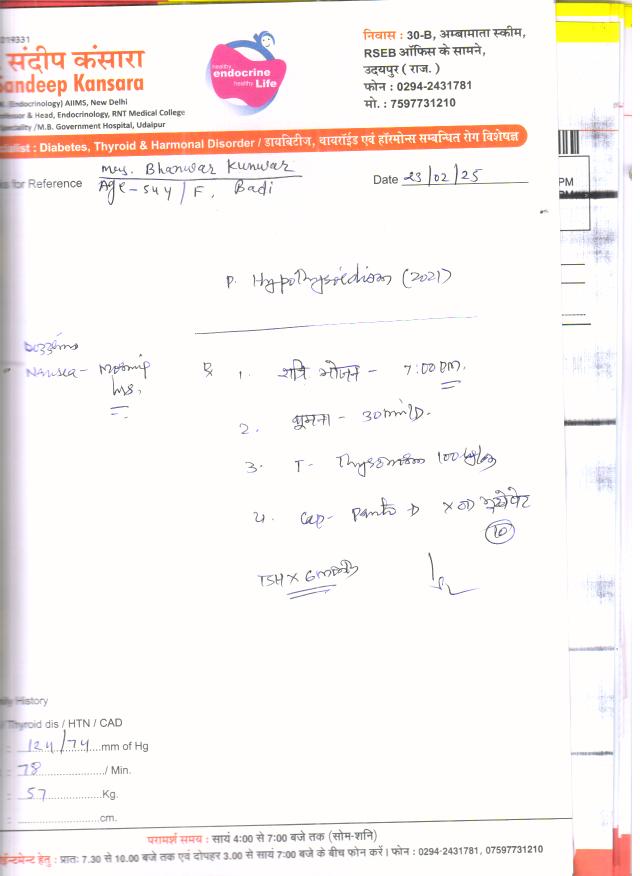 019331
संदीप कंसारा
Sandeep Kansara
(Endocrinology) AIIMS, New Delhi
Professor & Head, Endocrinology, RNT Medical College
Speciality /M.B. Government Hospital, Udaipur
healthy
endocrine
healthy Life
निवास : 30-B, अम्बामाता स्कीम,
RSEB ऑफिस के सामने,
उदयपुर ( राज. )
फोन : 0294-2431781
मो. : 7597731210
: Diabetes, Thyroid & Harmonal Disorder / डायबिटीज, थायरॉईड एवं हॉरमोन्स सम्बन्धित रोग विशेषज्ञ
for Reference Mrs. Bhanwar Kunwar
Date 23/02/25
Age - 54y / F, Badi
PM
P. Hypothyroidism (2021)
Nausea - Morning
℞ 1. रात्रि भोजन - 7:00 PM.
2. घूमना - 30 min/D.
3. T- Thyronorm 100
4. Cap- Panto D x OD
10
TSH x 6 month
History
Thyroid dis / HTN / CAD
: 124/74 mm of Hg
: 78 / Min.
: 57 Kg.
: cm.
परामर्श समय : सायं 4:00 से 7:00 बजे तक (सोम-शनि)
हेतु : प्रातः 7.30 से 10.00 बजे तक एवं दोपहर 3.00 से सायं 7:00 बजे के बीच फोन करें। फोन : 0294-2431781, 07597731210